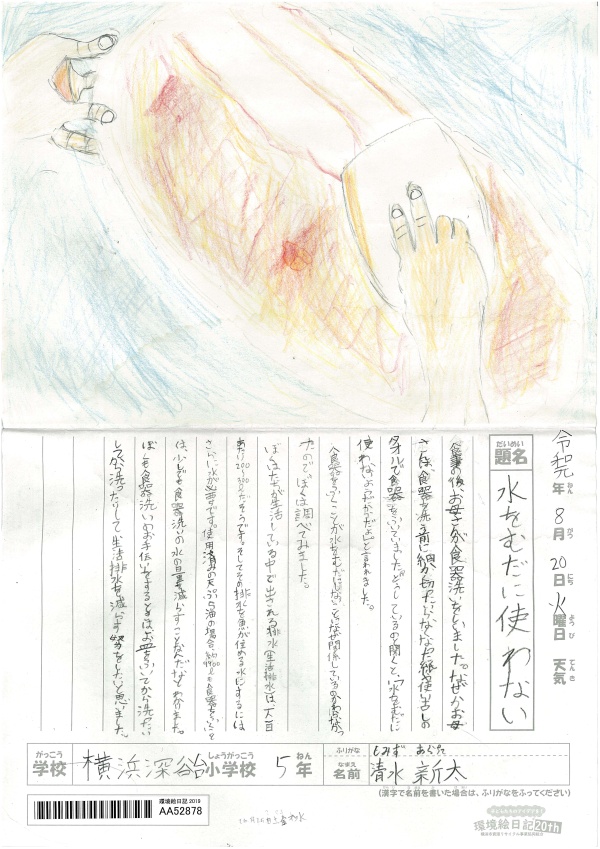 令和元年8月20日火曜日 天気
ねん がつ にち ようび てんき
だいめい
題名
水をむだに使わない
食事の後、お母さんが食器洗いをしていました。なぜかお母
さんは、食器を洗う前に細かく切った
タオルで食器をふいていました。どうしているのと聞くと、「水をむだに
使わないようにだよ」と言われました。
食器をふくことが水をむだにしないことになぜ関係しているのかわからなかっ
たのでぼくは調べてみました。
ぼくたちが生活している中で出される排水(生活排水)は一人一日
あたり200〜300Lだそうです。そしてその排水を魚が住める水にするには
さらに水が必要です。使用済みの天ぷら油の場合、
は、少しでも食器洗いの水の量を減らすことなんだなとわかりました。
ぼくも食器洗いのお手伝いをするときはお皿をふいてから洗ったり
して生活排水を減らす努力をしたいと思いました。
がっこう
学校
横浜深谷台小学校
しょうがっこう
5年
ねん
ふりがな しみず あらた
なまえ
名前
清水 新大
(漢字で名前を書いた場合は、ふりがなをふってください)
環境絵日記2019
AA52878
環境絵日記20th